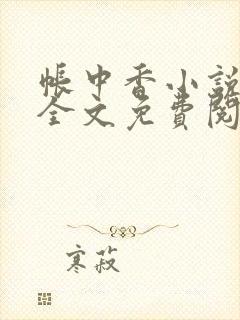 帳中香小說
全文免費閱
寒菽